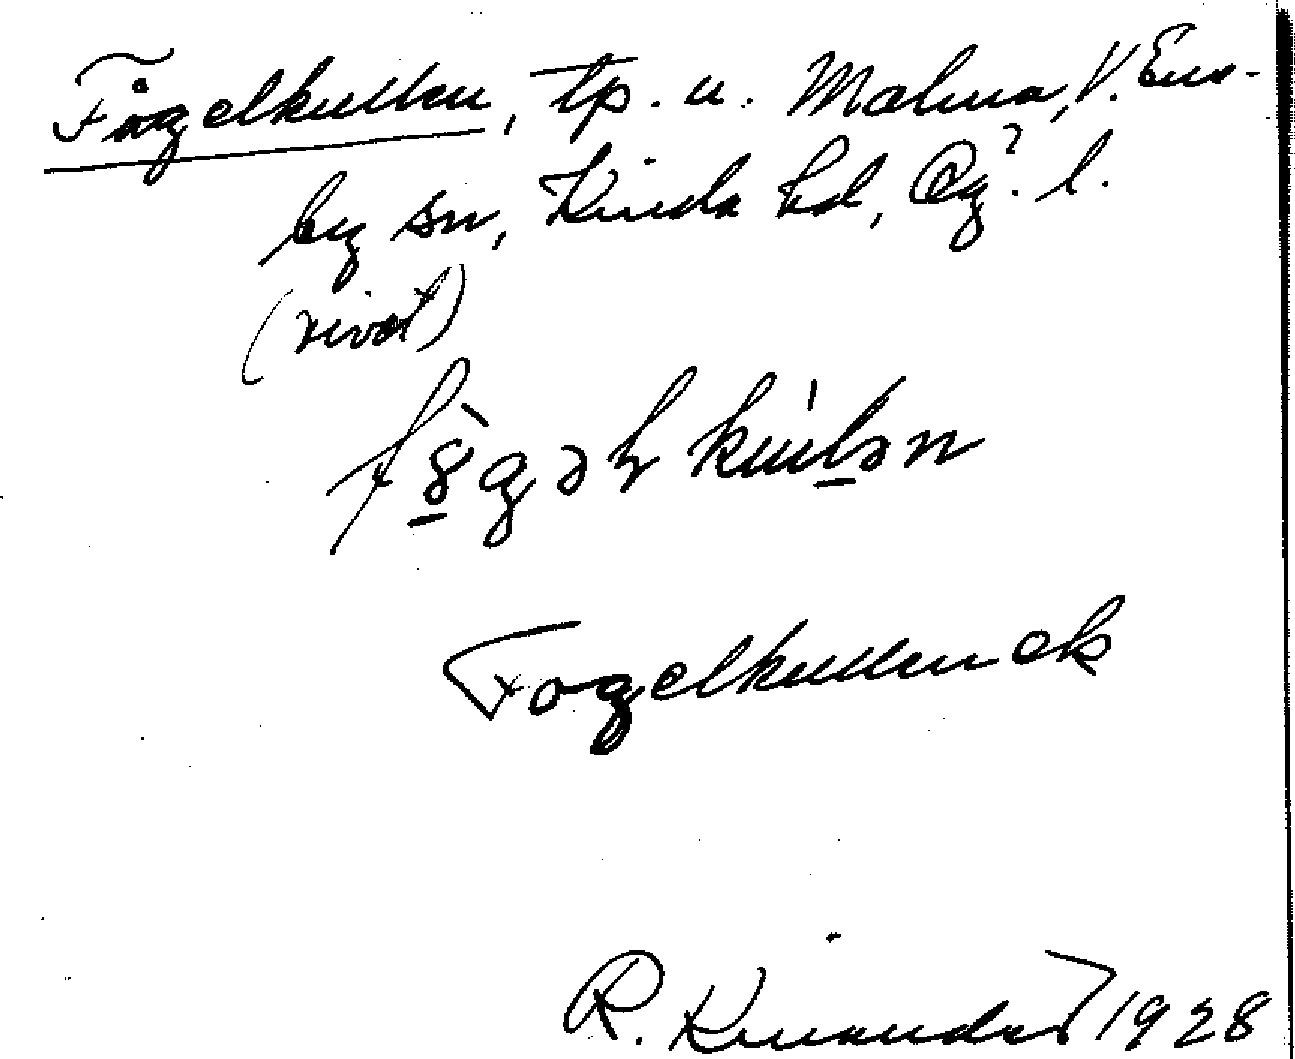 Fågelkullen, tp. u. Malma, V. Ene-
by sn, Kinda hd, Ög. l.
(rivet)
Fogelkullen ek
R. Kinander 1928